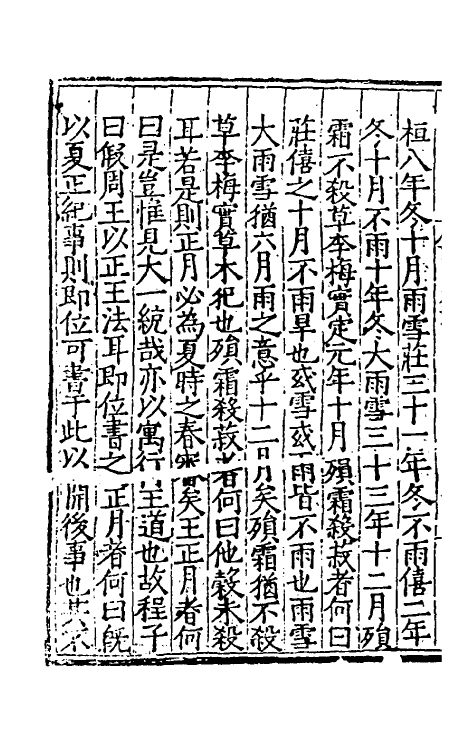 桓八年冬十月雨雪莊三十一年冬不雨僖二年
冬十月不雨十年冬大雨雪三十三年十二月殞
霜不殺草李梅實定元年十月殞霜殺菽者何曰
莊僖之十月不雨旱也或雪或雨皆不雨也雨雪
大雨雪猶六月雨之意乎十二月矣殞霜猶不殺
草李梅實草木犯也殞霜殺菽者何曰他穀未殺
耳若是則正月必為夏時之春矣王正月者何
曰是豈惟見大一統哉亦以寓行王道也故程子
曰假周王以正王法耳即位書之正月者何曰旣
以夏正紀事則即位可書于此以開後事也其不